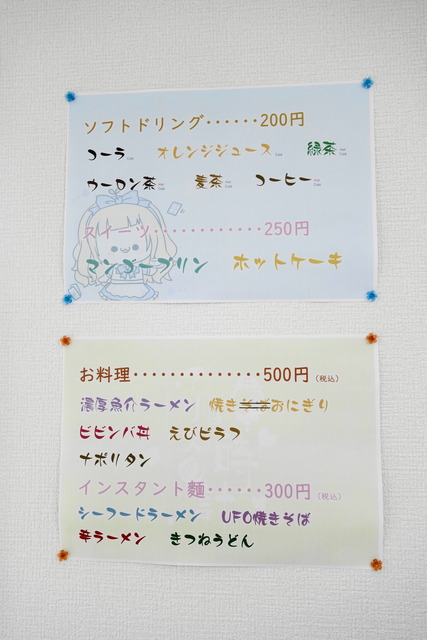 ソフトドリング‥‥‥200円
コーラ オレンジジュース 緑茶
ウーロン茶 麦茶 コーヒー
スイーツ‥‥‥‥‥‥250円
マンゴープリン ホットケーキ
お料理‥‥‥‥‥‥‥500円(税込)
濃厚魚介ラーメン 焼きそばおにぎり
ビビンバ丼 えびピラフ
ナポリタン
インスタント麺‥‥‥300円(税込)
シーフードラーメン UFO焼きそば
辛ラーメン きつねうどん